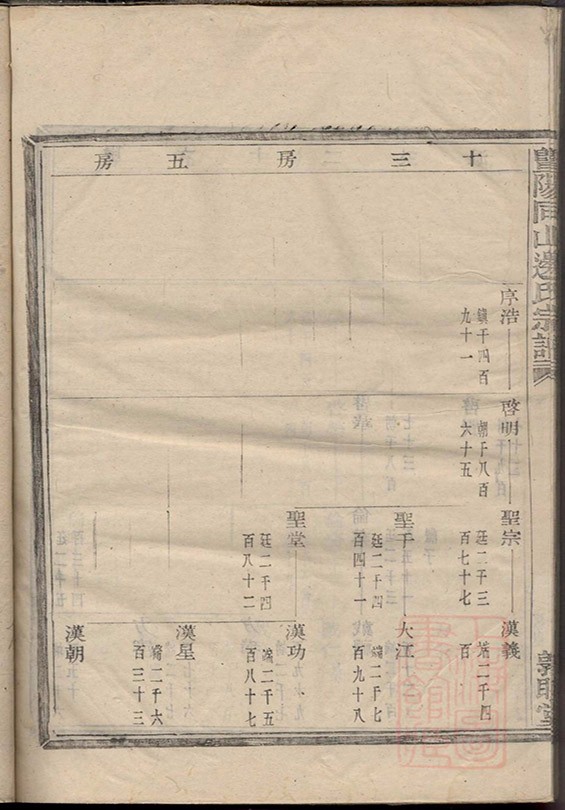 暨陽同山邊氏宗譜
敦睦堂
十三房 五房
序浩
鎮千四百
九十一
啓明
朝千八百
六十五
聖宗
廷二千三
百七十七
漢義
端二千四
百
聖千
廷二千四
百四十一
大江
端二千七
百九十八
聖堂
廷二千四
百八十二
漢功
端二千五
百八十七
漢星
端二千六
百三十三
漢朝